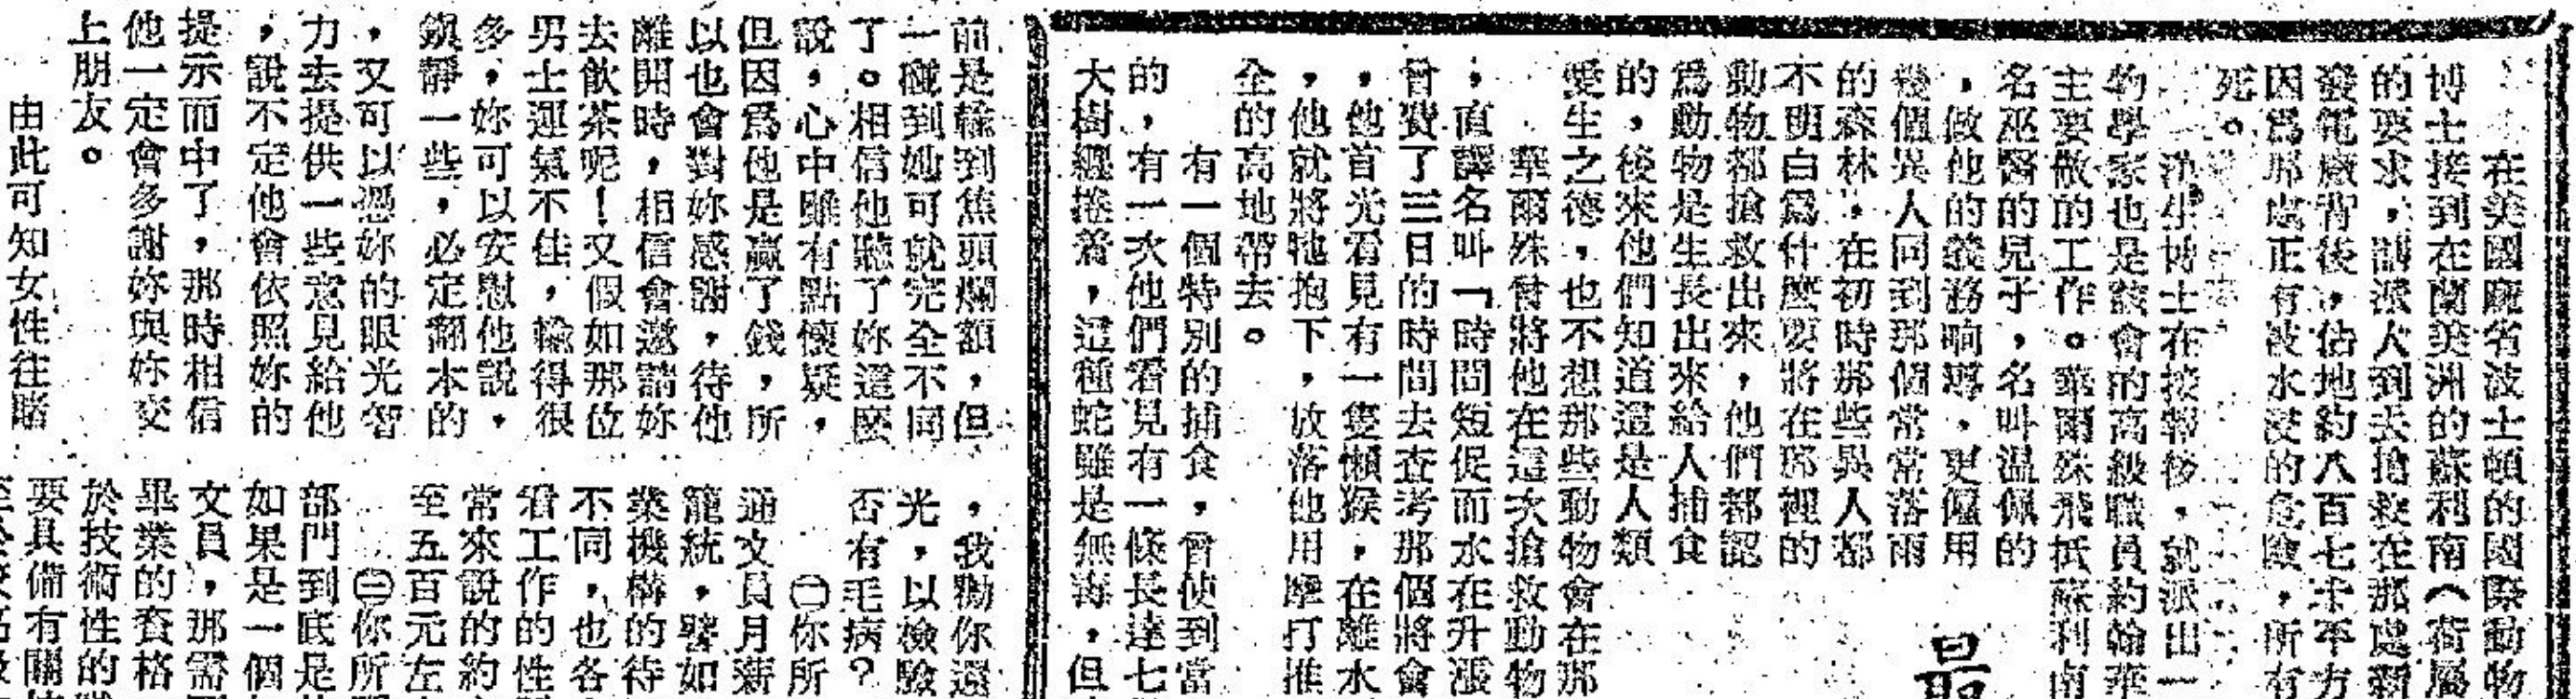 在美國麻省波士頓的國際動物
博士接到在蘭美洲的蘇利南（荷屬
的要求，請派人到去搶救在那處
發電廠背後，佔地約八百七十平方
因爲那處正有被水浸的危險，所有
死。
博士在接報後，就派出一
物學家也是該會的高級職員約翰華
主要做的工作。華爾殊飛抵蘇利南
名巫醫的兒子，名叫温佩的
，做他的義務嚮導，更僱用
幾個異人同到那個常常落雨
的森林，在初時那些異人都
不明白爲什麼要將在那裡的
動物都搶救出來，他們都認
爲動物是生長出來給人捕食
的，後來他們知道這是人類
愛生之德，也不想那些動物會在那
華爾殊曾將他在這次搶救動物
，直譯名叫「時間短促而水在升漲
曾費了三日的時間去查考那個將會
，他首先看見有一隻懶猴，在離水
，他就將牠抱下，放落他用摩打推
全的高地帶去。
有一個特別的捕食，曾使到當
的，有一次他們看見有一條長達七
大樹纏捲着，這種蛇雖是無毒，但
最
前是輸到焦頭爛額，但
一碰到她可就完全不同
了。相信他聽了妳這麼
說，心中雖有點懷疑，
但因爲他是贏了錢，所
以也會對妳感謝，待他
離開時，相信會邀請妳
去飲茶呢！又假如那位
男士運氣不佳，輸得很
多，妳可以安慰他說，
鎮靜一些，必定翻本的
，又可以憑妳的眼光智
力去提供一些意見給他
，說不定他會依照妳的
提示而中了，那時相信
他一定會多謝妳與妳交
上朋友。
由此可知女性往賭
，我勸你還
光，以檢驗
否有毛病？
㊁你所
通文員月薪
籠統，譬如
業機構的待
不同，也各
看工作的性
常來說的約
至五百元左
㊂你所
部門到底是
如果是一個
文員，那需
畢業的資格
於技術性的
要具備有關